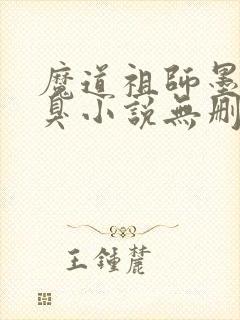 魔道祖師墨
臭小說無刪
王鍾麓